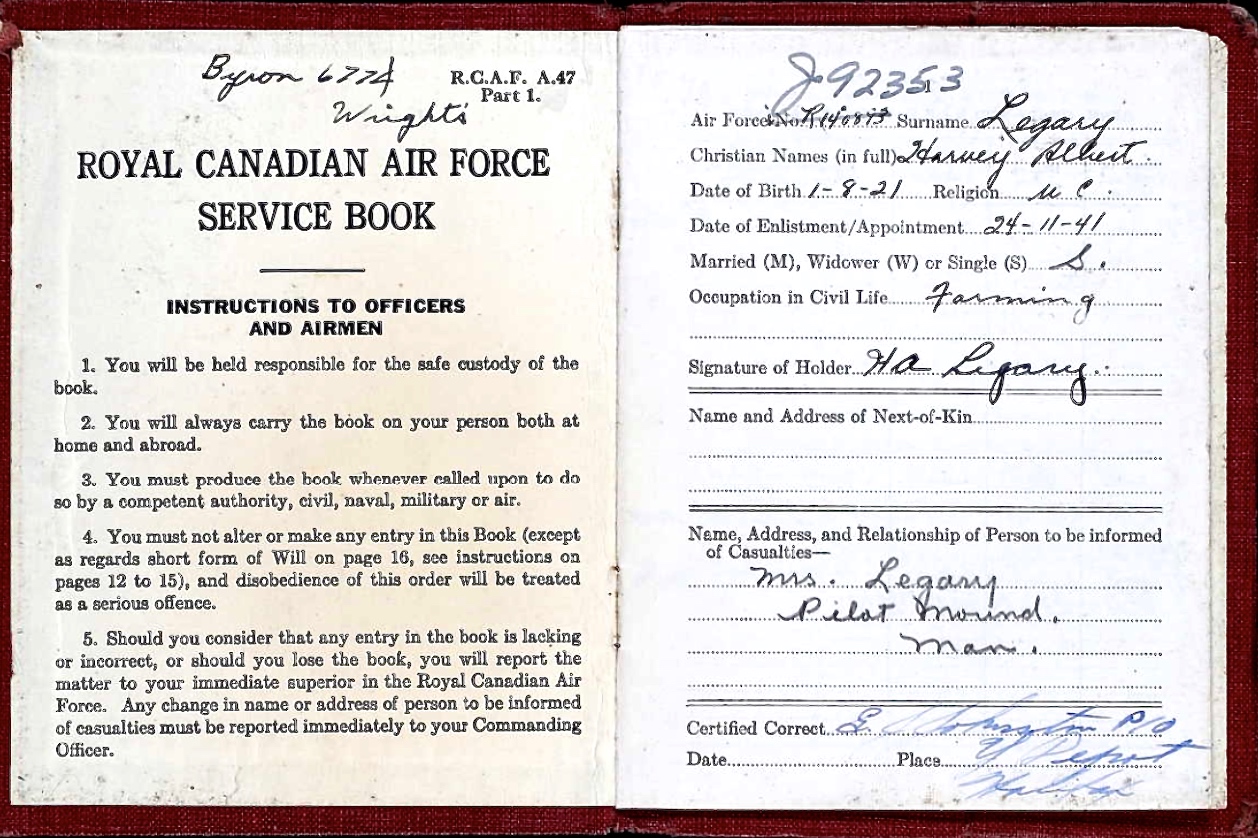 Byron 6774
R.C.A.F. A.47
Part 1.
Wright's
ROYAL CANADIAN AIR FORCE
SERVICE BOOK
INSTRUCTIONS TO OFFICERS
AND AIRMEN
1. You will be held responsible for the safe custody of the
book.
2. You will always carry the book on your person both at
home and abroad.
3. You must produce the book whenever called upon to do
so by a competent authority, civil, naval, military or air.
4. You must not alter or make any entry in this Book (except
as regards short form of Will on page 16, see instructions on
pages 12 to 15), and disobedience of this order will be treated
as a serious offence.
5. Should you consider that any entry in the book is lacking
or incorrect, or should you lose the book, you will report the
matter to your immediate superior in the Royal Canadian Air
Force. Any change in name or address of person to be informed
of casualties must be reported immediately to your Commanding
Officer.
J92353
Air Force No. R140873 Surname Legary
Christian Names (in full) Harvey Albert
Date of Birth 1-8-21 Religion U C.
Date of Enlistment/Appointment 24-11-41
Married (M), Widower (W) or Single (S) S.
Occupation in Civil Life Farming
Signature of Holder HA Legary.
Name and Address of Next-of-Kin
Name, Address, and Relationship of Person to be informed
of Casualties—
Mrs. Legary
Pilot Mound.
Man.
Certified Correct E. P/O
Date Place Y Depot
Halifax